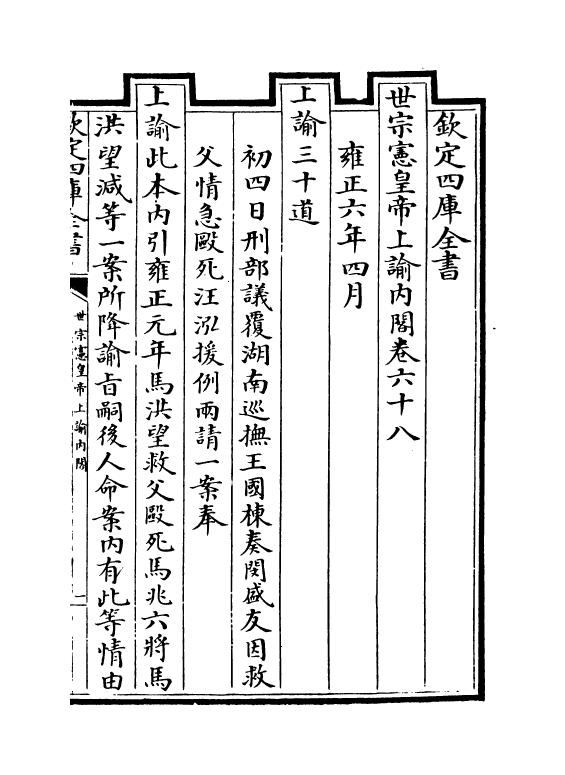 欽定四庫全書
世宗憲皇帝上諭內閣卷六十八
雍正六年四月
上諭三十道
初四日刑部議覆湖南巡撫王國棟奏閔盛友因救
父情急毆死汪泓援例兩請一案奉
上諭此本內引雍正元年馬洪望救父毆死馬兆六將馬
洪望減等一案所降諭旨嗣後人命案內有此等情由
欽定四庫全書
世宗憲皇帝上諭內閣
一